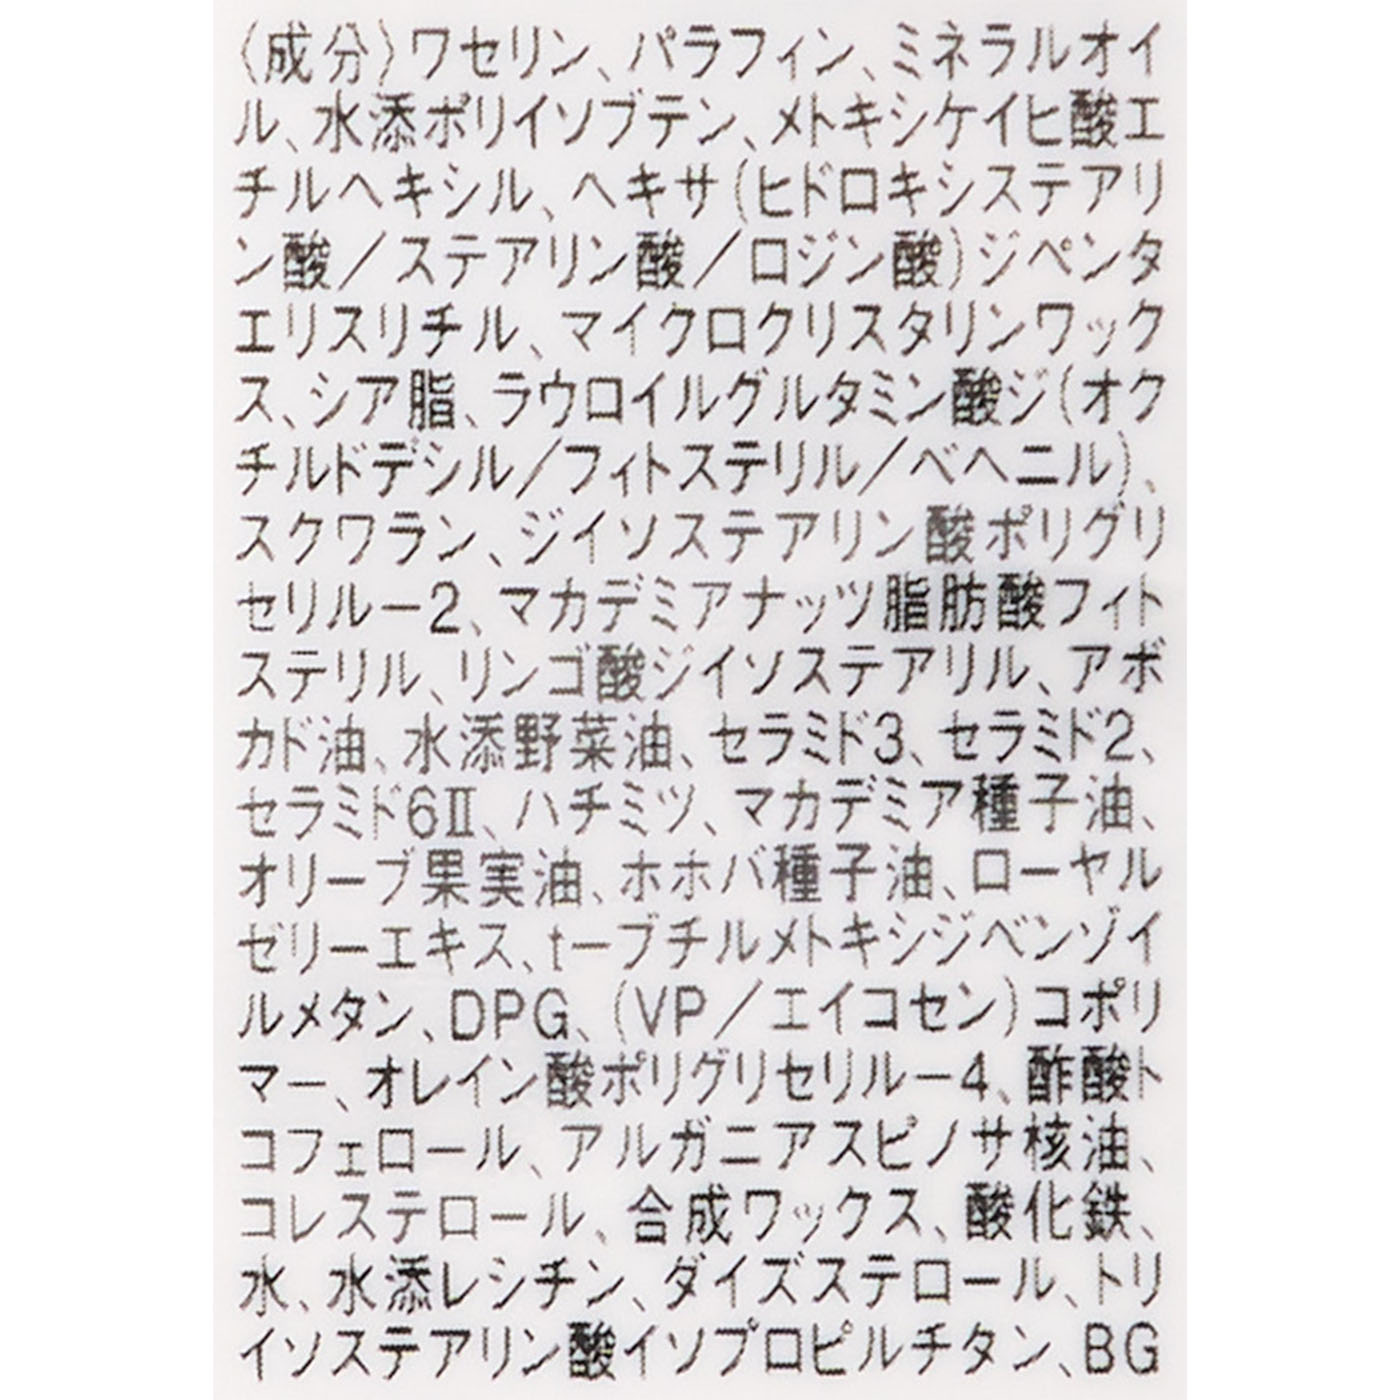 〈成分〉ワセリン、パラフィン、ミネラルオイ
ル、水添ポリイソブテン、メトキシケイヒ酸エ
チルヘキシル、ヘキサ(ヒドロキシステアリ
ン酸/ステアリン酸/ロジン酸)ジペンタ
エリスリチル、マイクロクリスタリンワック
ス、シア脂、ラウロイルグルタミン酸ジ(オク
チルドデシル/フィトステリル/ベヘニル)、
スクワラン、ジイソステアリン酸ポリグリ
セリルー2、マカデミアナッツ脂肪酸フィト
ステリル、リンゴ酸ジイソステアリル、アボ
カド油、水添野菜油、セラミド3、セラミド2、
セラミド6Ⅱ、ハチミツ、マカデミア種子油、
オリーブ果実油、ホホバ種子油、ローヤル
ゼリーエキス、tーブチルメトキシジベンゾイ
ルメタン、DPG、(VP/エイコセン)コポリ
マー、オレイン酸ポリグリセリルー4、酢酸ト
コフェロール、アルガニアスピノサ核油、
コレステロール、合成ワックス、酸化鉄、
水、水添レシチン、ダイズステロール、トリ
イソステアリン酸イソプロピルチタン、BG